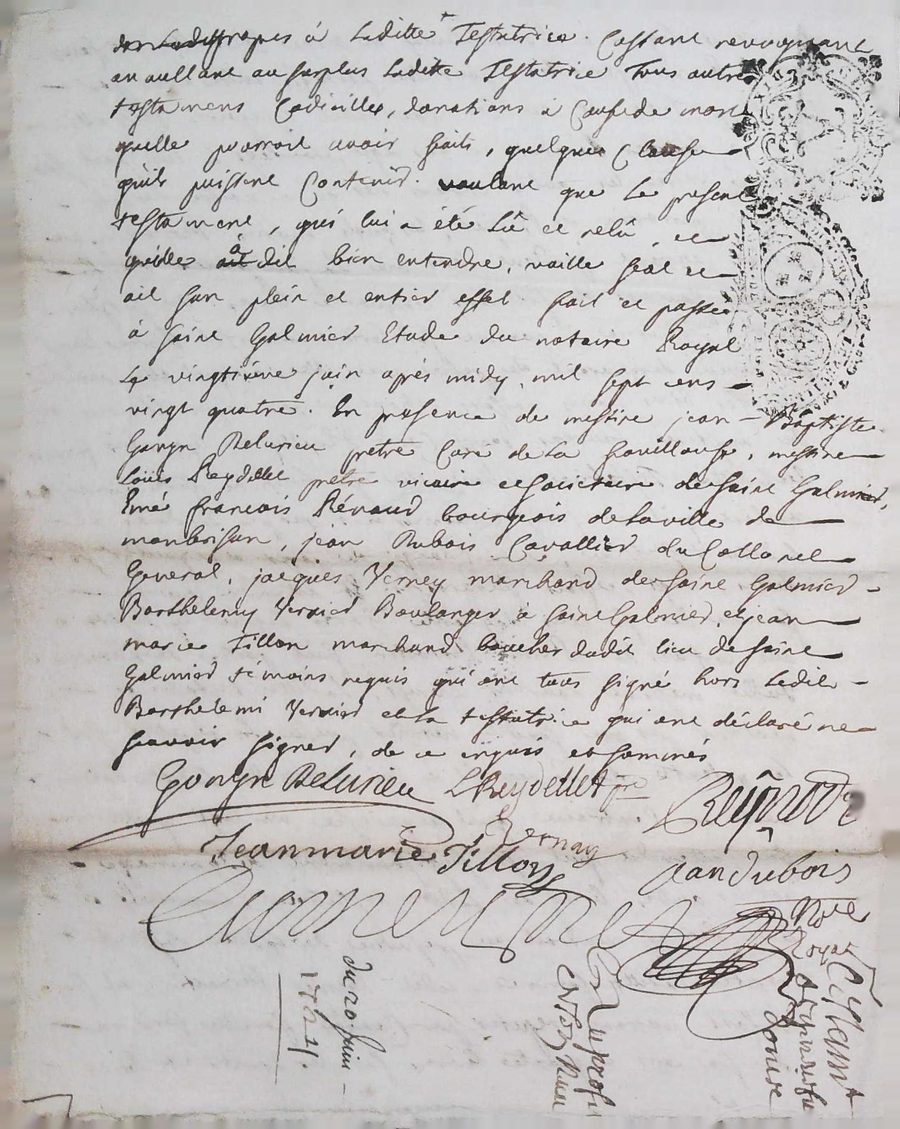 à Laditte Testatrice. Cassant revoquant
annullant au surplus Laditte Testatrice Tous autre
testamens Codicilles, donations à Cause de mort
quelle pourroit avoir faits, quelques Clause
quils puissent Contenir. voulant que Le present
testament, qui lui a été Lû et relû, et
quelle a dit bien entendre, vaille soit et
ait son plein et entier effet. fait et passé
à Saint Galmier Etude du notaire Royal
Le vingtieme juin après midy, mil sept cens
vingt quatre. En presence de messire jean-Baptiste
Gonyn Delurieu pretre Curé de La fouillouse, messire
Louis Reydellet pretre vicaire et societaire de Saint Galmier,
Emé francois Rénaud bourgeois de la ville de
monbrison, jean Dubois Cavallier du Collonel
General, jacques Verney marchand de Saint Galmier
Barthelemy Verrier Boulanger à Saint Galmier, et jean
marie Tillon marchand boucher dudit lieu de Saint
Galmier témoins requis qui ont tous signé hors Ledit
Barthelemi Verrier et La testatrice qui ont déclaré ne
scavoir signer, de ce enquis et sommés
Gonyn Delurieu LReydellet pre
Vernay
Jeanmarie Tillon
Jean Dubois
Nore
Royal
du 20 juin
1724